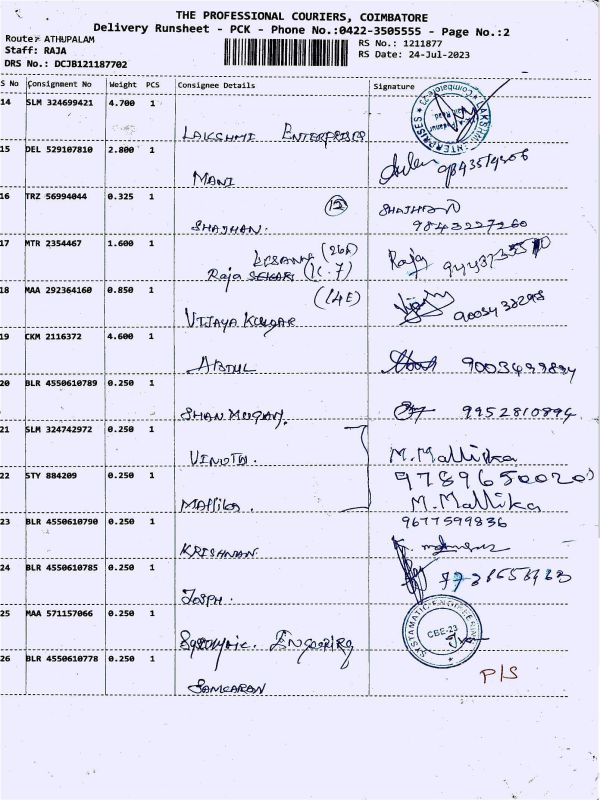 THE PROFESSIONAL COURIERS, COIMBATORE
Delivery Runsheet - PCK - Phone No.:0422-3505555 - Page No.:2
Route: ATHUPALAM
RS No.: 1211877
Staff: RAJA
RS Date: 24-Jul-2023
DRS No.: DCJB121187702
S No Consignment No Weight PCS Consignee Details Signature
14 SLM 324699421 4.700 1
LAKSHMI ENTERPRISES
15 DEL 529107810 2.800 1
MANI
16 TRZ 56994044 0.325 1 15 SHAJHAN
SHAJHAN. 9843227260
17 MTR 2354467 1.600 1 (26A)
Raja (1C.7) Raja
18 MAA 292364160 0.850 1 (14E)
VIJAYA KUMAR
19 CKM 2116372 4.600 1
ABDUL 9003499894
20 BLR 4550610789 0.250 1
SHANMUGAM. 9952810894
21 SLM 324742972 0.250 1
VINOTH. M.Mallika
22 STY 884209 0.250 1 9789650020
Mallika. M.Mallika
23 BLR 4550610790 0.250 1 9677599836
KRISHNAN
24 BLR 4550610785 0.250 1
JOSPH.
25 MAA 571157066 0.250 1 SYSTAMATIC ENGINEERING
CBE-23
26 BLR 4550610778 0.250 1
SANKARAN P/S